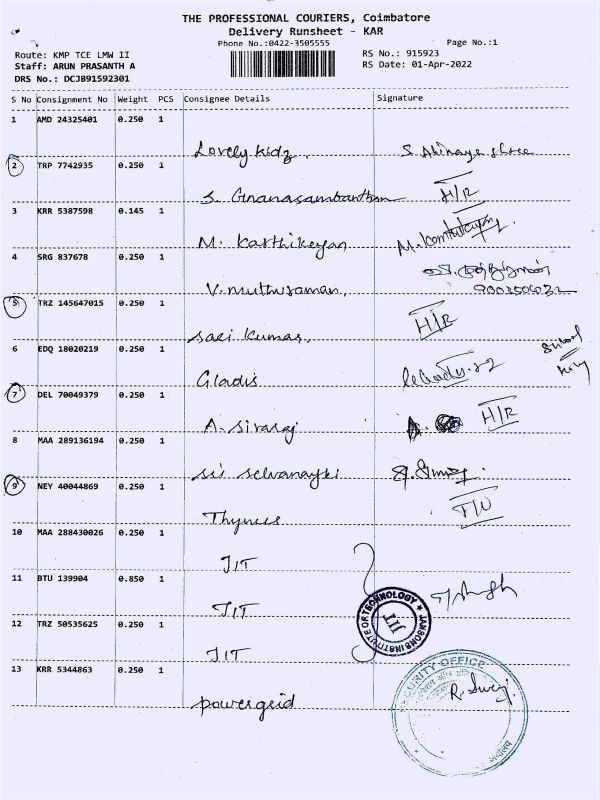 THE PROFESSIONAL COURIERS, Coimbatore
Delivery Runsheet - KAR
Phone No.:0422-3505555
Page No.:1
Route: KMP TCE LMW II
RS No.: 915923
Staff: ARUN PRASANTH A
RS Date: 01-Apr-2022
DRS No.: DCJB91592301
S No Consignment No Weight PCS Consignee Details Signature
1 AMD 24325401 0.250 1
Lovely kidz. S. Abinaya shree
2 TRP 7742935 0.250 1
S. Gnanasambanthan H/R
3 KRR 5387598 0.145 1
M. Karthikeyan
4 SRG 837678 0.250 1
V. muthuraman,
5 TRZ 145647015 0.250 1
H/R
Sasi kumar,
6 EDQ 18020219 0.250 1
Gladis
7 DEL 70049379 0.250 1
A. Sivaraj H/R
8 MAA 289136194 0.250 1
sri selvanayki
9 NEY 40044869 0.250 1
10 MAA 288430026 0.250 1
JIT
11 BTU 139904 0.850 1
JIT
JANSONS INSTITUTE OF TECHNOLOGY
JIT
12 TRZ 50535625 0.250 1
JIT
13 KRR 5344863 0.250 1
SECURITY OFFICE
powergrid